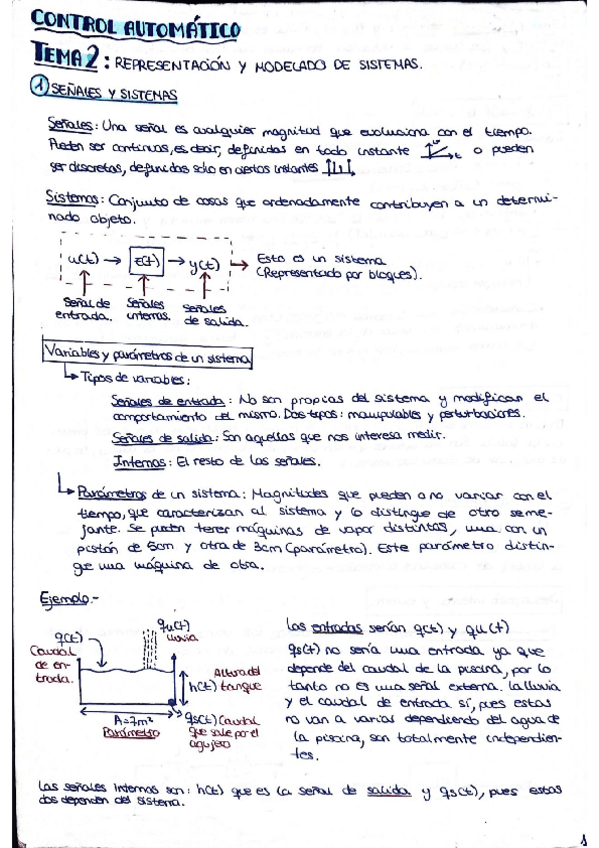 CONTROL AUTOMÁTICO
TEMA 2: REPRESENTACIÓN Y MODELADO DE SISTEMAS.
1 SEÑALES Y SISTEMAS
Señales: Una señal es cualquier magnitud que evoluciona con el tiempo.
Pueden ser continuas, es decir, definidas en todo instante t o pueden
ser discretas, definidas sólo en ciertos instantes
Sistemas: Conjunto de cosas que ordenadamente contribuyen a un determi-
nado objeto.
u(t) → z(t) → y(t) → Esto es un sistema
(Representado por bloques).
Señal de entrada. Señales internas. Señales de salida.
Variables y parámetros de un sistema
Tipos de variables:
Señales de entrada: No son propias del sistema y modifican el
comportamiento del mismo. Dos tipos: manipulables y perturbaciones.
Señales de salida: Son aquellas que nos interesa medir.
Internas: El resto de las señales.
Parámetros de un sistema: Magnitudes que pueden o no variar con el
tiempo, que caracterizan al sistema y lo distingue de otro seme-
jante. Se pueden tener máquinas de vapor distintas, una con un
pistón de 5cm y otra de 3cm (parámetro). Este parámetro distin-
gue una máquina de otra.
Ejemplo.-
q(t)
Caudal
de en-
trada.
qu(t)
lluvia
Altura del
h(t) tanque
A=7m²
Parámetro
qs(t) Caudal
que sale por el
agujero
Las entradas serían q(t) y qu(t)
qs(t) no sería una entrada ya que
depende del caudal de la piscina, por lo
tanto no es una señal externa. La lluvia
y el caudal de entrada sí, pues estas
no van a variar dependiendo del agua de
la piscina, son totalmente independien-
tes.
Las señales internas son: h(t) que es la señal de salida y qs(t), pues estas
dos dependen del sistema.
1